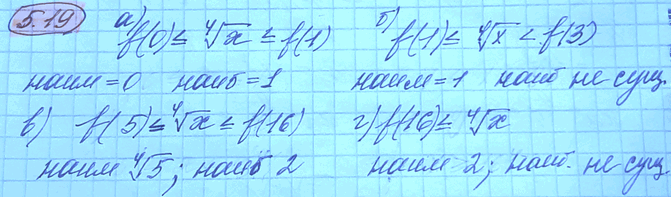 5.19 а) f(0) ≤ ∜x ≤ f(1) б) f(1) ≤ ∜x < f(3)
наим = 0 наиб = 1 наим = 1 наиб не сущ.
в) f(5) ≤ ∜x ≤ f(16) г) f(16) ≤ ∜x
наим ∜5; наиб 2 наим 2; наиб. не сущ.